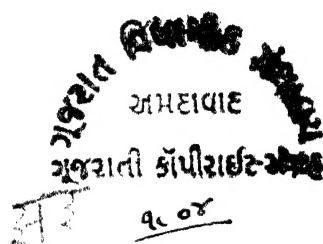 ગૂજરાત વિદ્યાપીઠ ગ્રંથાલય
અમદાવાદ
ગૂજરાતી કૉપીરાઈટ-સંગ્રહ
૧૮ ૦૪